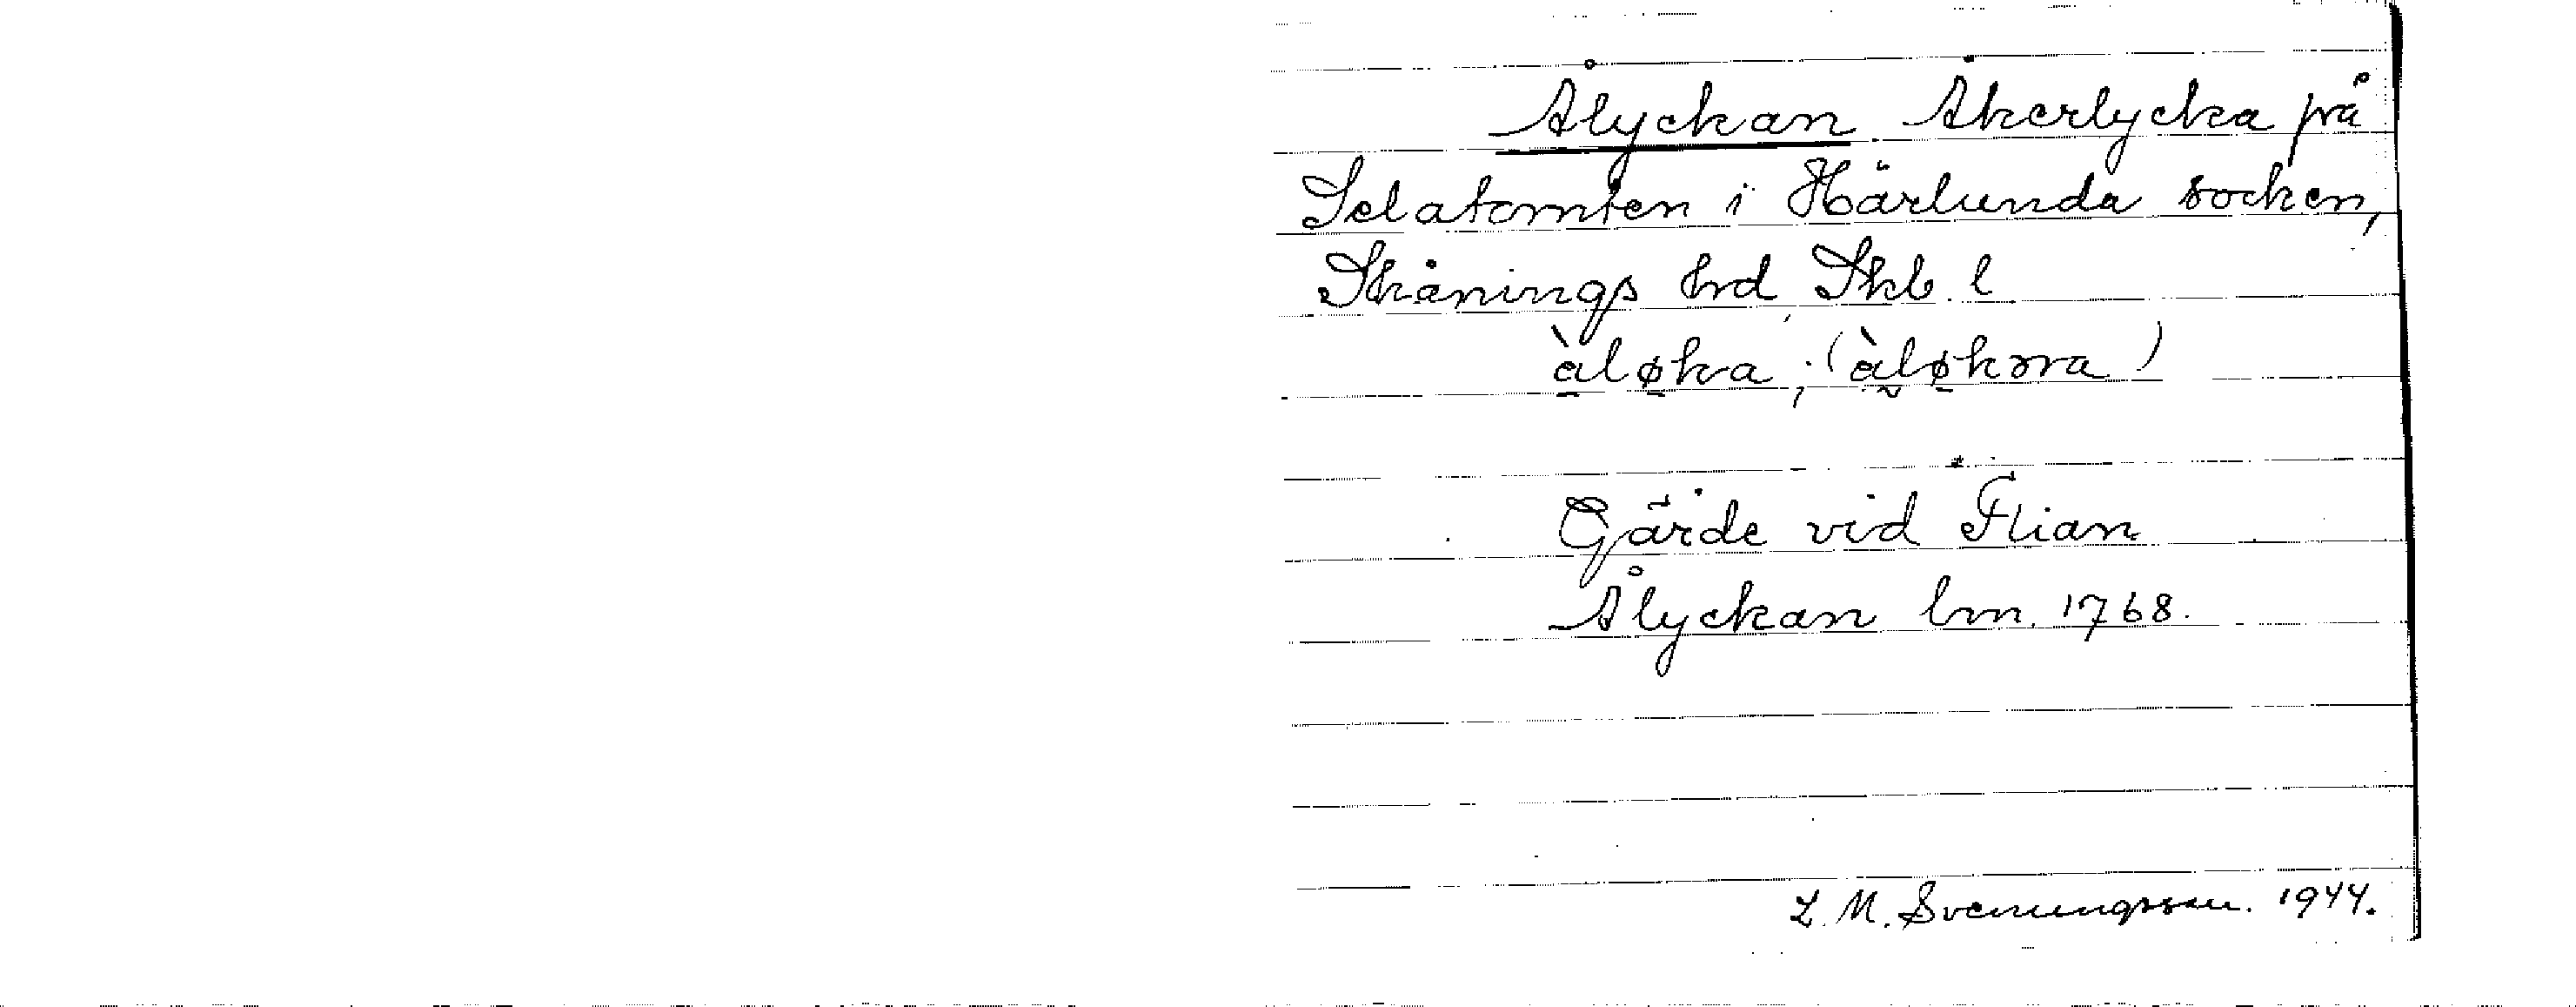 Ålyckan Åkerlycka på
Selatomten i Härlunda socken,
Skånings hrd Skb. l
àløka; (àløkɔra)
Gärde vid Flian
Ålyckan lm. 1768.
L. M. Svenungsson. 1944.